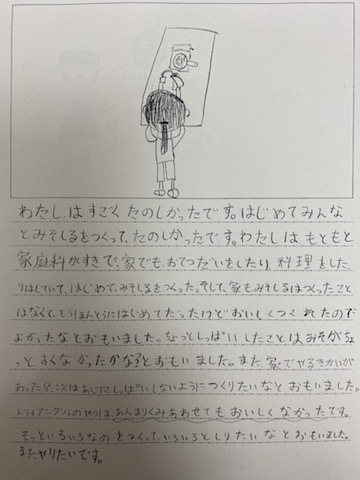 わたしはすごくたのしかったです。はじめてみんな
とみそしるをつくって、たのしかったです。わたしは、もともと
家庭科がすきで、家でも、おてつだいをしたり、料理をした
りはしていて、はじめて、みそしるをつくった。そして、家も、みそしるはつくったこと
はなくて、もうほんとうにはじめてだったけどおいしくつくれたので
よかったなとおもいました。ちょっとしっぱいしたことはみそがちょ
っとすくなかったかな?とおもいました。また、家でやるきかいが
あったら、こんどは、あじにしっぱいしないようにつくりたいなとおもいました。
トライアングルのやつは、あんまりくみあわせてもおいしくなかったです。
もっといろいろなのをつくって、いろいろとしりたいなとおもいました。
またやりたいです。